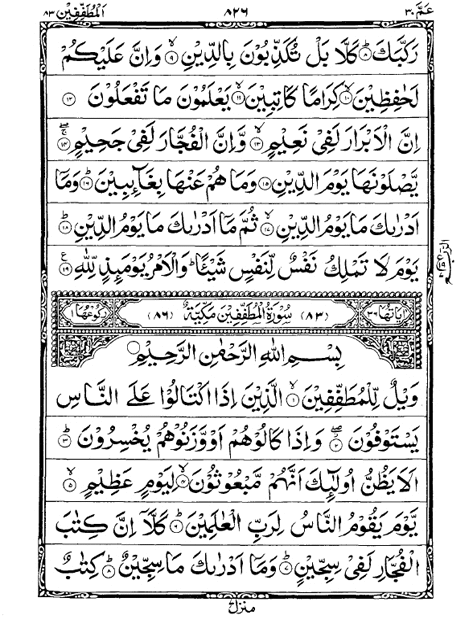 عَمَّ ٣٠ ٨٢٦ الْمُطَفِّفِيْن ٨٣
رَكَّبَكَ ۝٨ كَلَّا بَلْ تُكَذِّبُوْنَ بِالدِّيْنِ ۝٩ وَاِنَّ عَلَيْكُمْ
لَحٰفِظِيْنَ ۝١٠ كِرَامًا كَاتِبِيْنَ ۝١١ يَعْلَمُوْنَ مَا تَفْعَلُوْنَ ۝١٢
اِنَّ الْاَبْرَارَ لَفِىْ نَعِيْمٍ ۝١٣ وَّاِنَّ الْفُجَّارَ لَفِىْ جَحِيْمٍ ۝١٤
يَّصْلَوْنَهَا يَوْمَ الدِّيْنِ ۝١٥ وَمَا هُمْ عَنْهَا بِغَآئِبِيْنَ ۝١٦ وَمَآ
اَدْرٰىكَ مَا يَوْمُ الدِّيْنِ ۝١٧ ثُمَّ مَآ اَدْرٰىكَ مَا يَوْمُ الدِّيْنِ ۝١٨
يَوْمَ لَا تَمْلِكُ نَفْسٌ لِّنَفْسٍ شَيْئًا ۭ وَالْاَمْرُ يَوْمَئِذٍ لِّلّٰهِ ۝١٩
اٰيَاتُهَا ٣٦ (٨٣) سُوْرَةُ الْمُطَفِّفِيْنَ مَكِّيَّةٌ (٨٦) رُكُوْعُهَا ١
بِسْمِ اللّٰهِ الرَّحْمٰنِ الرَّحِيْمِ
وَيْلٌ لِّلْمُطَفِّفِيْنَ ۝١ الَّذِيْنَ اِذَا اكْتَالُوْا عَلَى النَّاسِ
يَسْتَوْفُوْنَ ۝٢ وَاِذَا كَالُوْهُمْ اَوْ وَّزَنُوْهُمْ يُخْسِرُوْنَ ۝٣
اَلَا يَظُنُّ اُولٰٓئِكَ اَنَّهُمْ مَّبْعُوْثُوْنَ ۝٤ لِيَوْمٍ عَظِيْمٍ ۝٥
يَّوْمَ يَقُوْمُ النَّاسُ لِرَبِّ الْعٰلَمِيْنَ ۝٦ كَلَّآ اِنَّ كِتٰبَ
الْفُجَّارِ لَفِىْ سِجِّيْنٍ ۝٧ وَمَآ اَدْرٰىكَ مَا سِجِّيْنٌ ۝٨ كِتٰبٌ
منزل